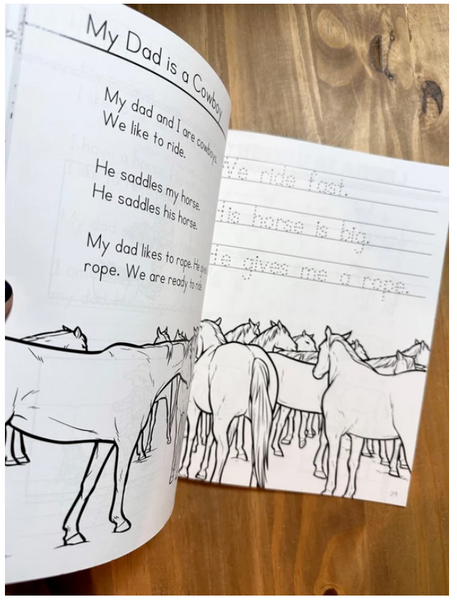 My Dad is a Cowboy
My dad and I are cowboys.
We like to ride.
He saddles my horse.
He saddles his horse.
My dad likes to rope. He
rope. We are ready to ride
We ride fast.
His horse is big.
He gives me a rope.